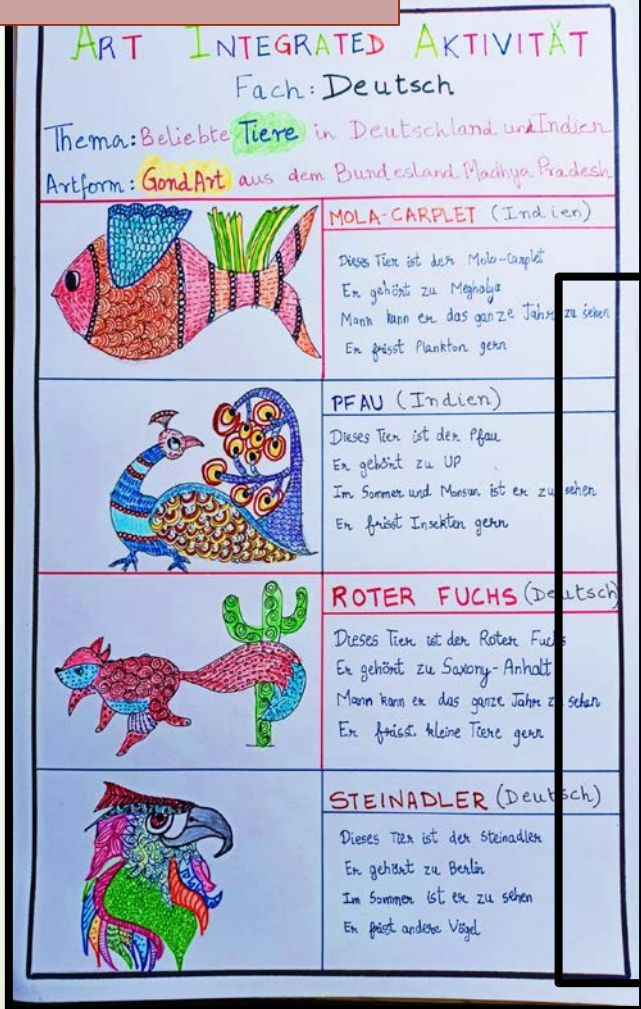 ART INTEGRATED AKTIVITÄT
Fach: Deutsch
Thema: Beliebte Tiere in Deutschland und Indien
Artform: Gond Art aus dem Bundesland Madhya Pradesh
MOLA-CARPLET (Indien)
Dieses Tier ist der Mola-Carplet
Er gehört zu Meghalya
Mann kann er das ganze Jahr zu sehen
Er frisst Plankton gern
PFAU (Indien)
Dieses Tier ist der Pfau
Er gehört zu UP
Im Sommer und Monsun ist er zu sehen
Er frisst Insekten gern
ROTER FUCHS (Deutsch)
Dieses Tier ist der Roter Fuchs
Er gehört zu Saxony-Anhalt
Mann kann er das ganze Jahr zu sehen
Er frisst kleine Tiere gern
STEINADLER (Deutsch)
Dieses Tier ist der Steinadler
Er gehört zu Berlin
Im Sommer ist er zu sehen
Er frist andere Vögel